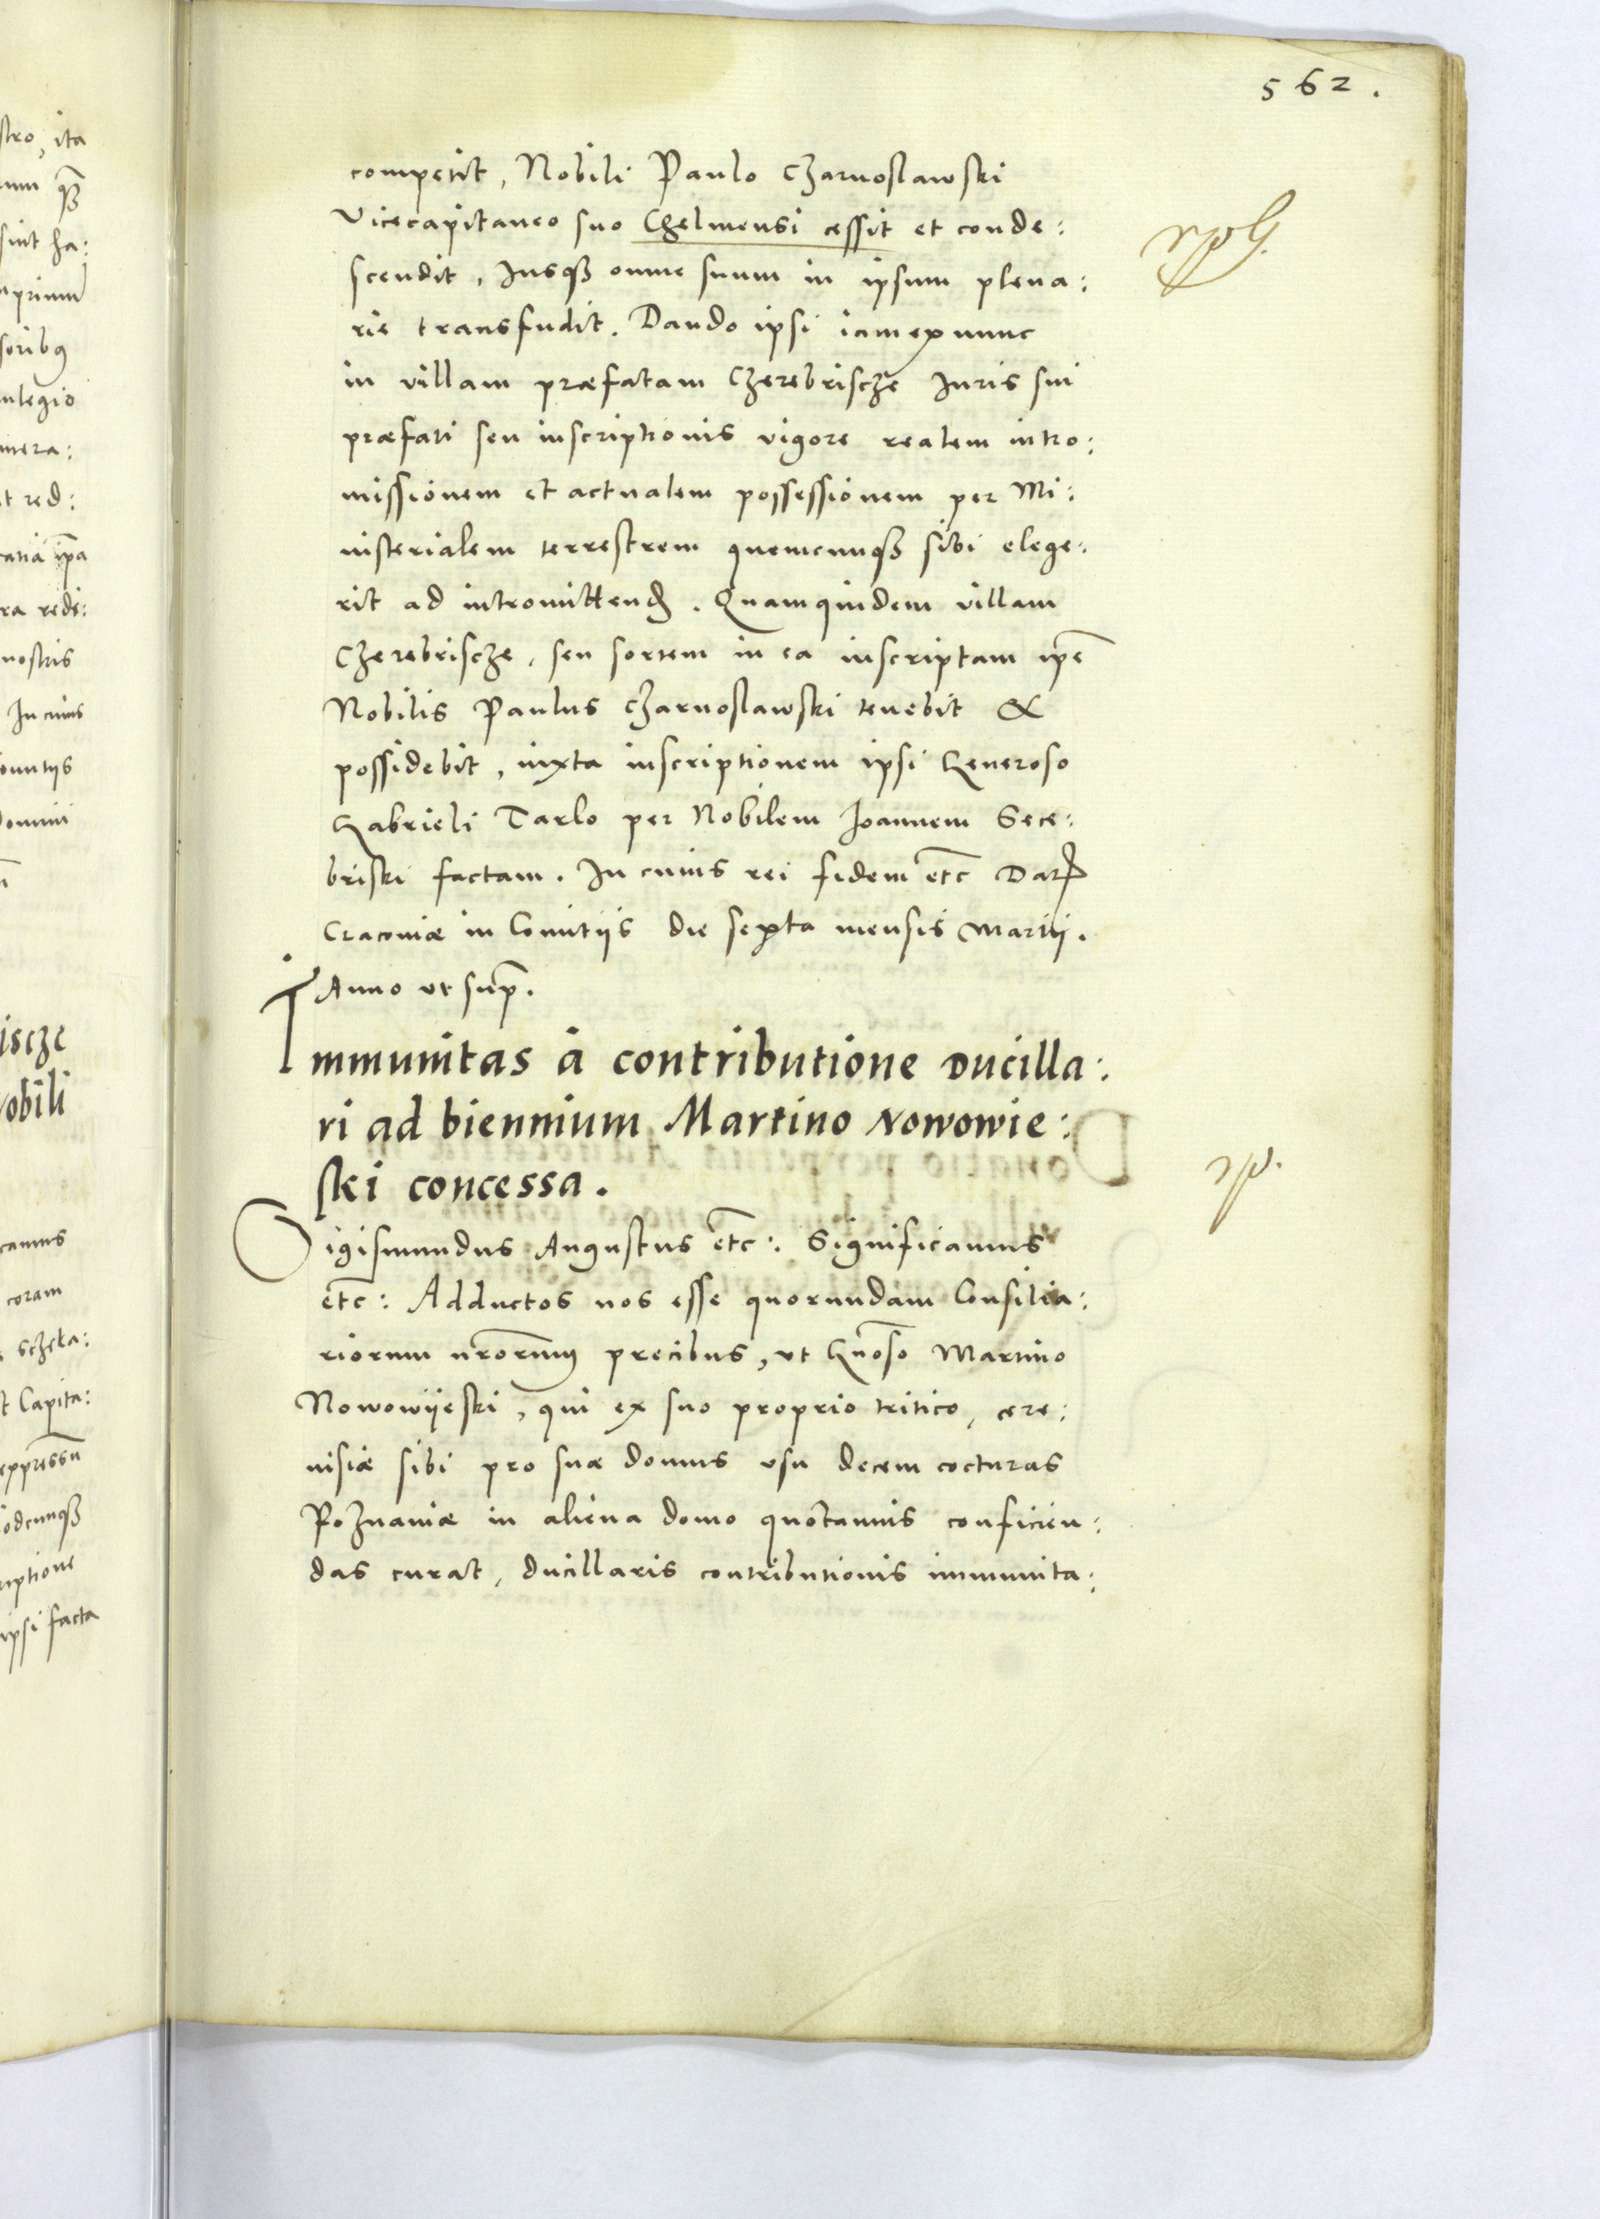 562.
competit, Nobili Paulo Czarnoslawski
Vicecapitaneo suo Chelmensi cessit et conde:
scendit, Iusq3 omne suum in ipsum plena:
rie transfudit. Dando ipsi iam ex nunc
in villam præfatam Czerebriscze Iuris sui
præfati seu inscriptionis vigore realem intro:
missionem et actualem possessionem per Mi:
nisterialem terrestrem quemcunq3 sibi elege:
rit ad intromittend. Quamquidem villam
Czerebriscze, seu sortem in ea inscriptam ipe
Nobilis Paulus Czarnoslawski tenebit &
possidebit, iuxta inscriptionem ipsi Generoso
Gabrieli Tarlo per Nobilem Ioannem Sece:
briski factam. In cuius rei fidem etc Dat
Cracoviæ in Comitiis die sexta mensis Martij.
Anno ut sup.
Immunitas à contributione Ducilla:
ri ad biennium Martino Nowowie:
ski concessa.
Sigismundus Augustus etc: Significamus
etc: Adductos nos esse quorundam Consilia:
riorum nrorum precibus, ut Gnoso Martino
Nowowijeski, qui ex suo proprio tritico, cere:
visiæ sibi pro suæ domus usu decem cocturas
Poznaniæ in aliena domo quotannis conficien:
das curat, ducillaris contributionis immunita:
stro, ita
sint ha:
coram
t Capita:
ipsi facta